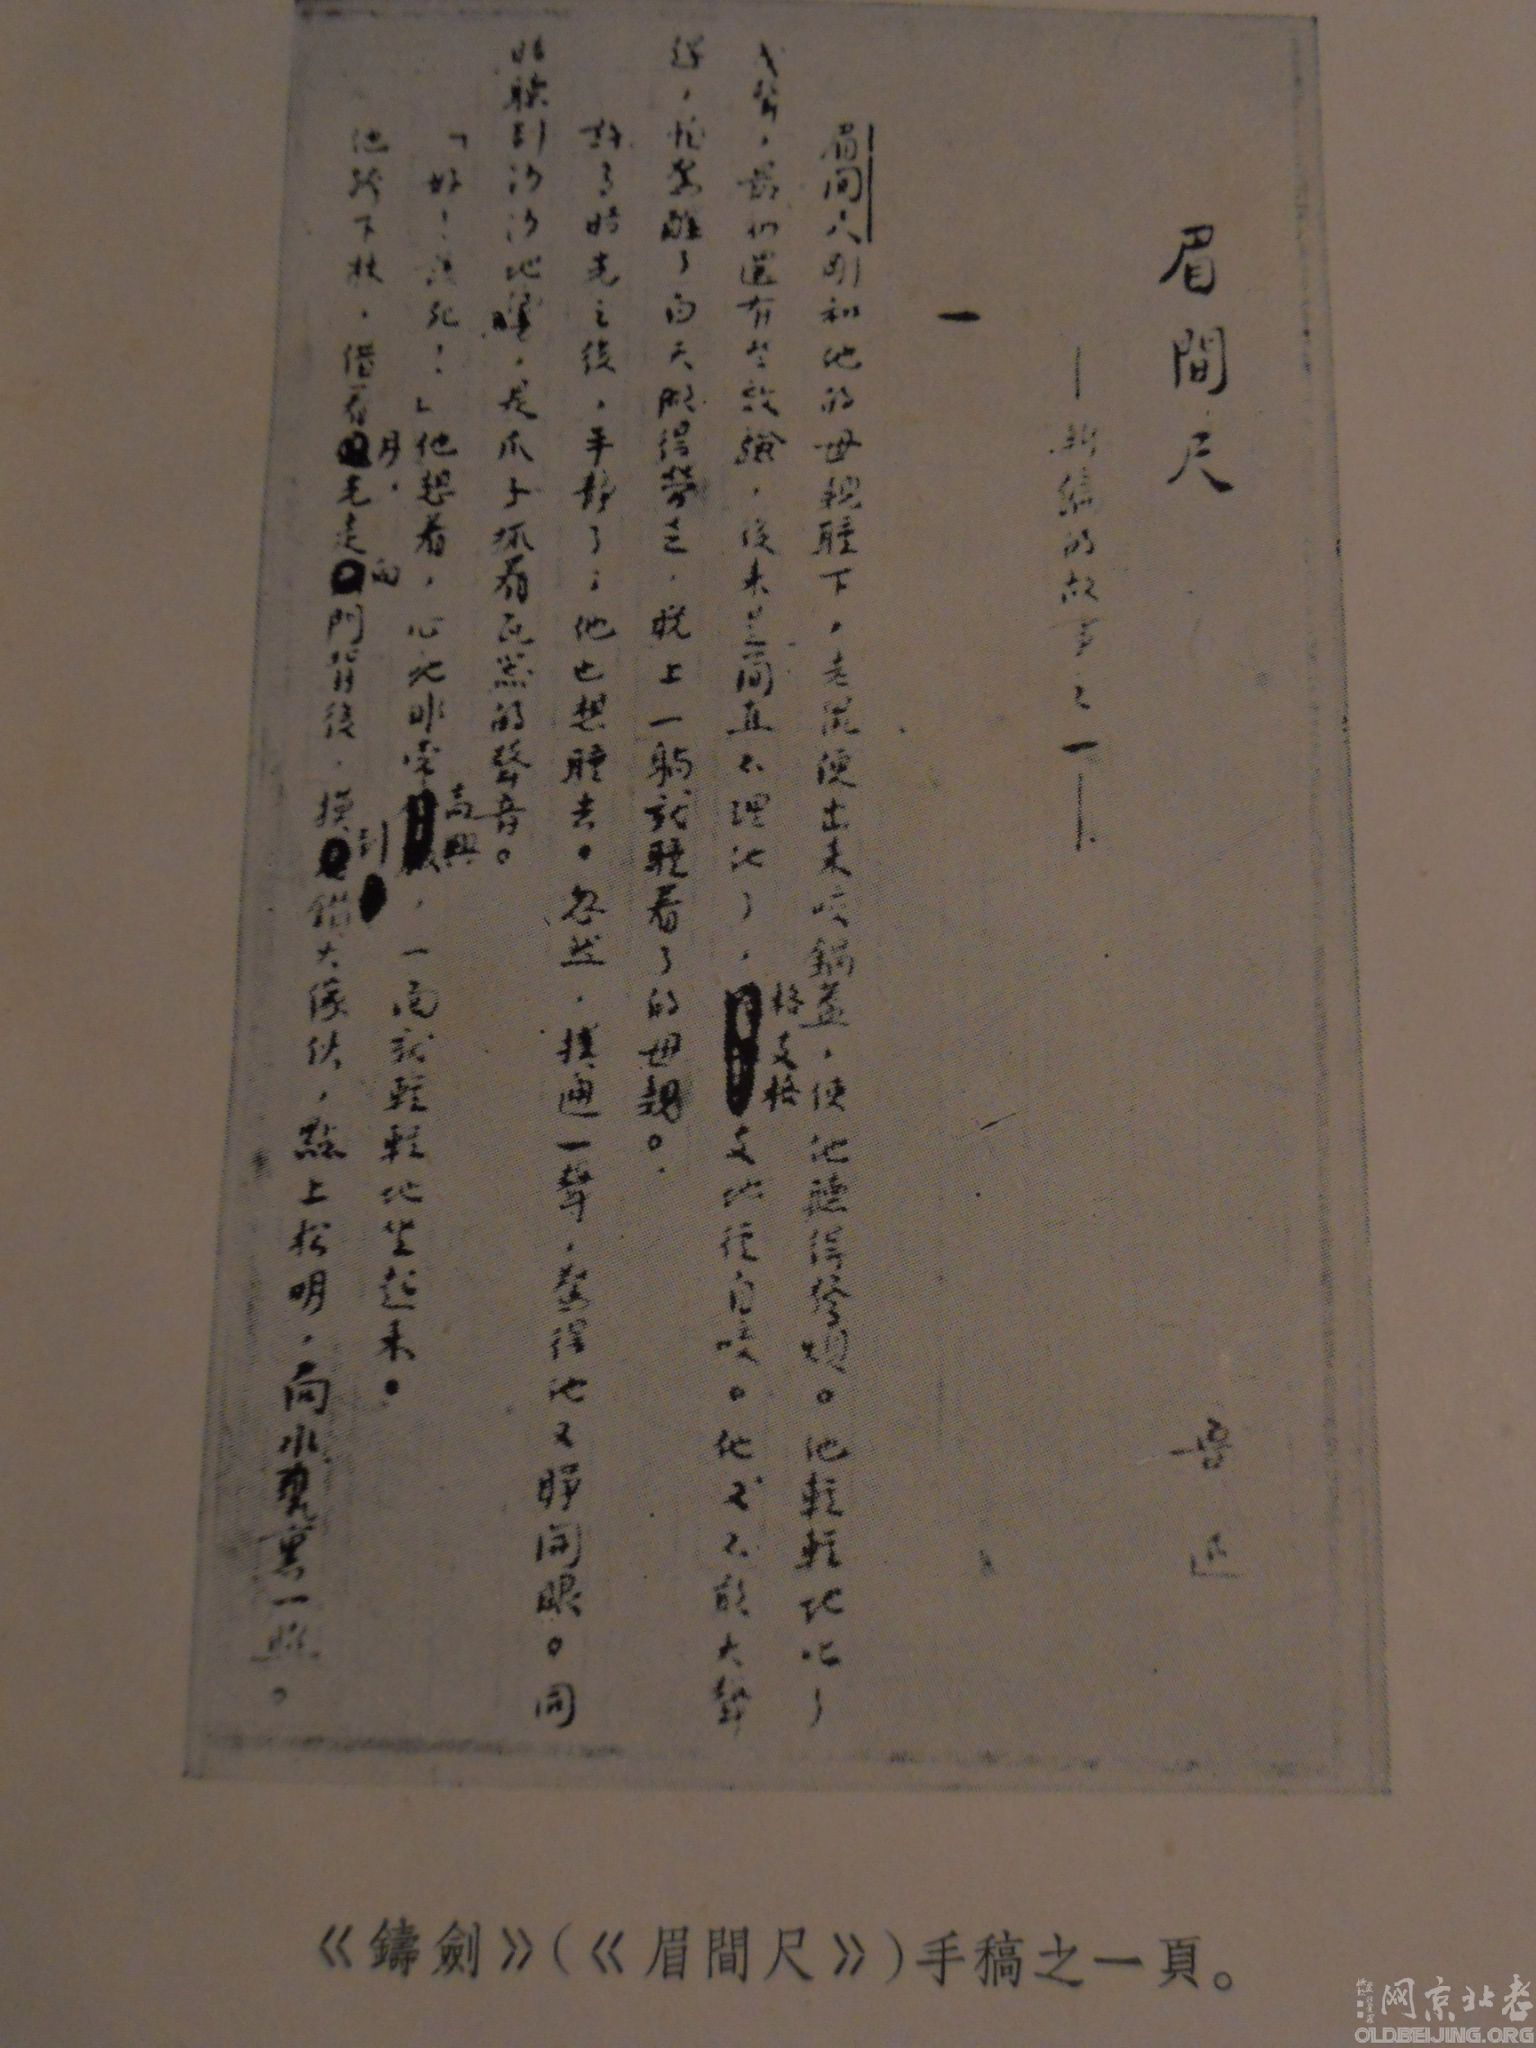 眉間尺　魯迅
——新編的故事之一——
一
眉間尺剛和他的母親睡下，老鼠便出來咬鍋蓋，使他聽得發煩。他輕輕地叱了
幾聲，最初還有些效驗，後來是簡直不理他了，格支格支地徑自咬。他又不敢大聲
趕，怕驚醒了白天做得勞乏，晚上一躺就睡着了的母親。
許多時光之後，平靜了；他也想睡去。忽然，撲通一聲，驚得他又睜開眼。同
時聽到沙沙地響，是爪子抓着瓦器的聲音。
「好！該死！」他想着，心裏非常高興，一面就輕輕地坐起來。
他跨下牀，借着月光走向門背後，摸到鑽火傢伙，點上松明，向水甕裏一照。
《鑄劍》(《眉間尺》)手稿之一頁。
老北京网
OLDBEIJING.ORG